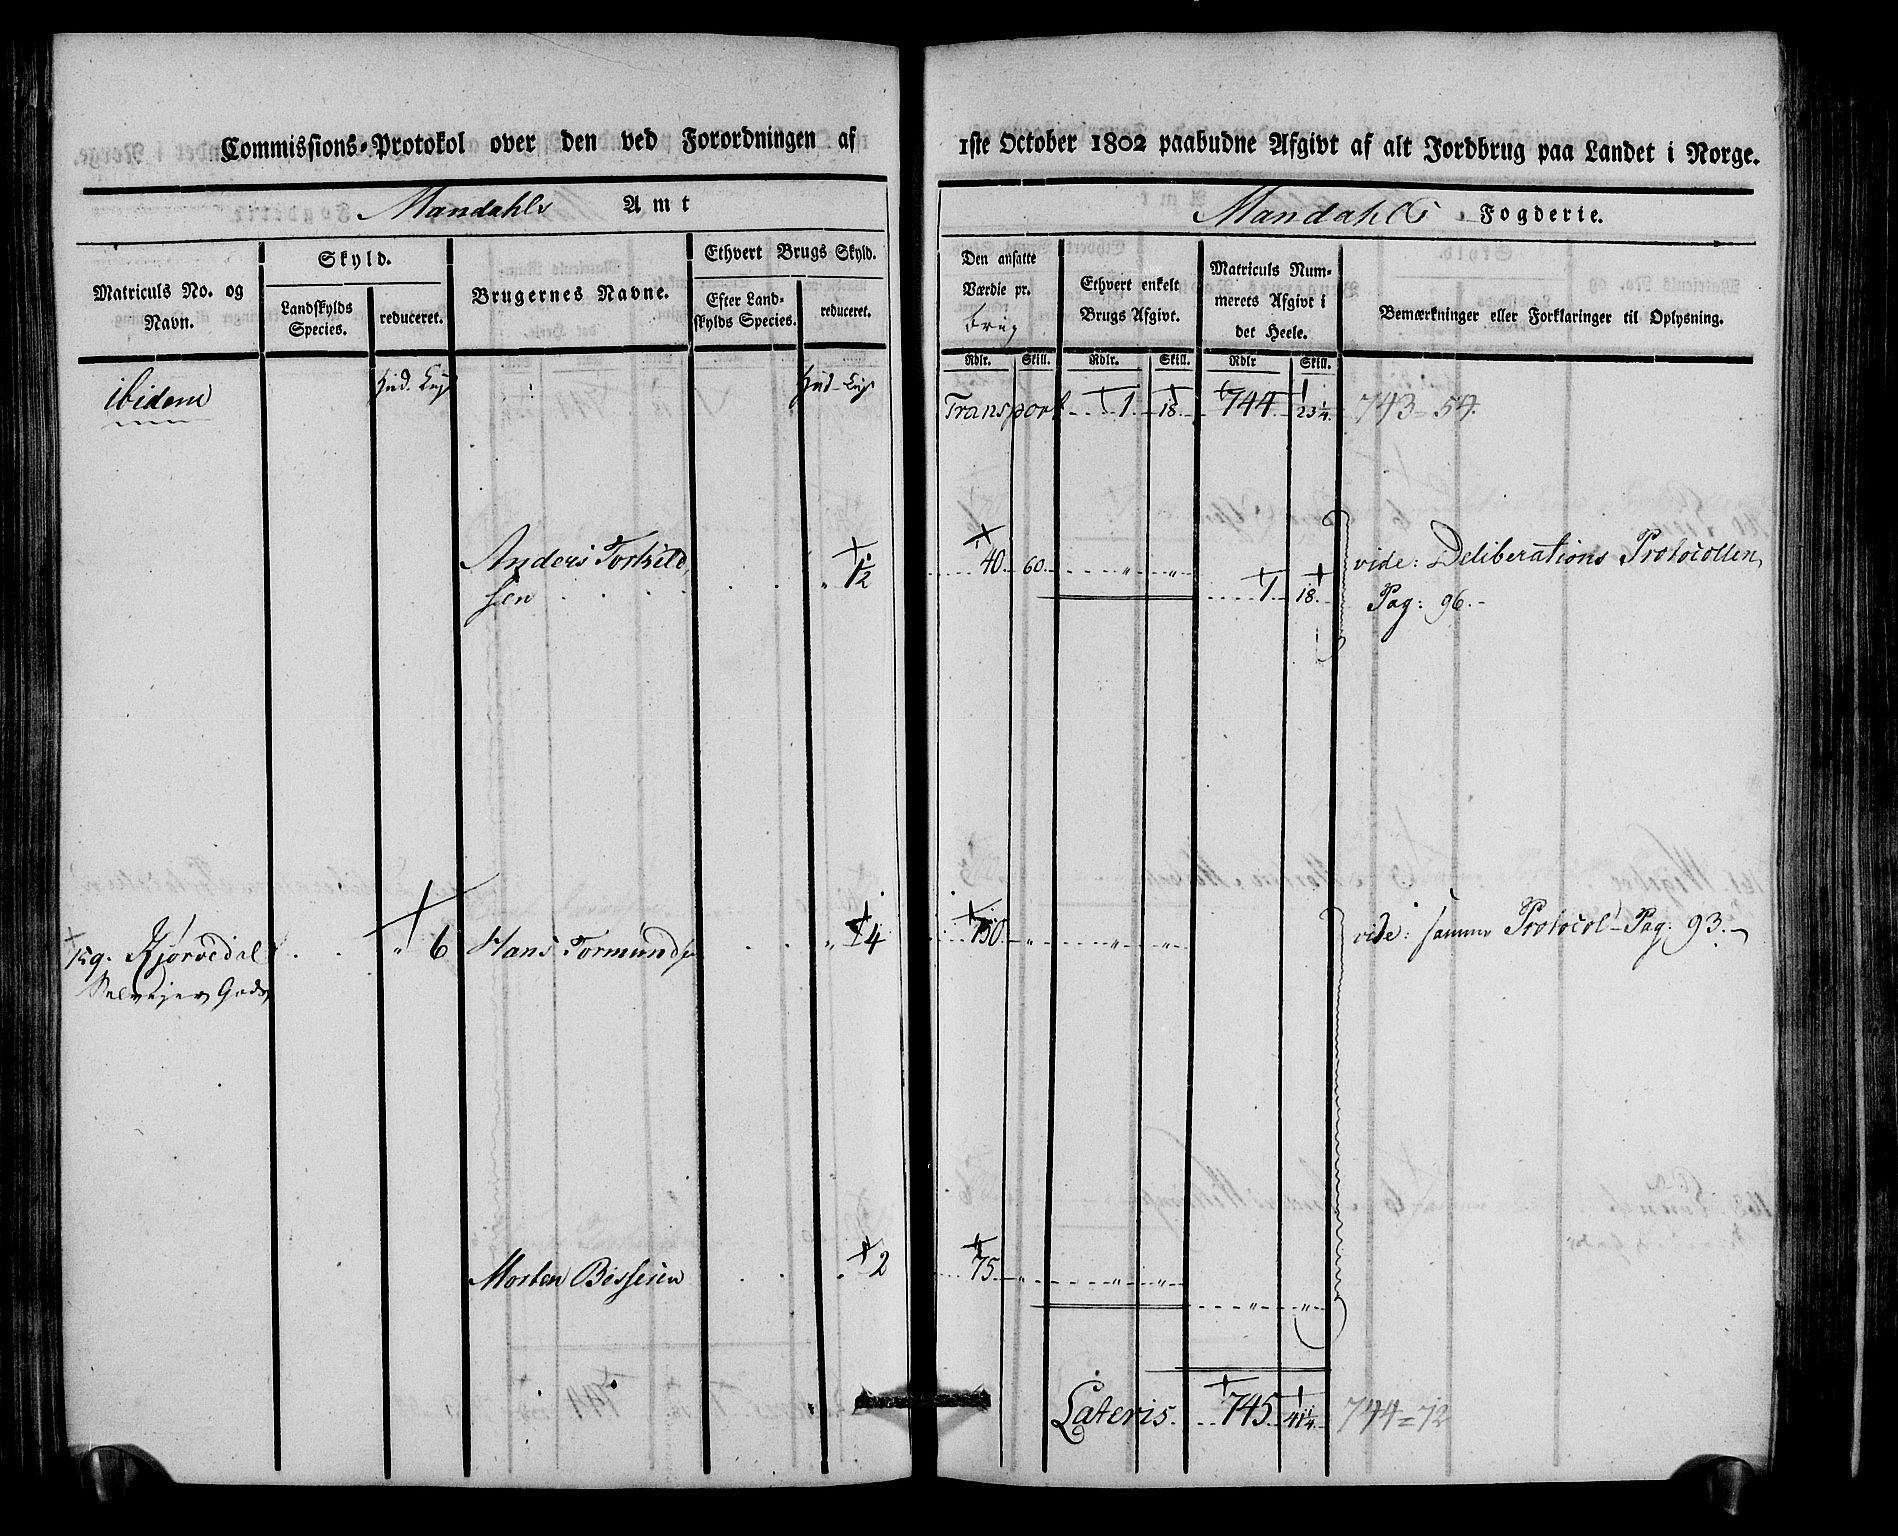 Commissions-Protokol over den ved Forordningen af 1ste October 1802 paabudne Afgivt af alt Jordbrug paa Landet i Norge.
Mandahls Amt Mandahls Fogderie.
Matriculs No. og Navn.
Skyld.
Landskylds Species.
reduceret.
Brugernes Navne.
Ethvert Brugs Skyld.
Efter Landskylds Species.
reduceret.
Den ansatte Værdie pr. brug
Ethvert enkelt Brugs Afgivt.
Matriculs Nummerets Afgivt i det Heele.
Bemærkninger eller Forklaringer til Oplysning.
Rdlr. Skill. Rdlr. Skill. Rdlr Skill.
ibidem Hud. Hud.
Transport 1. 18. 744. 23¼. 743 = 54.
Anders Torkild- „ ½ 40. 60. „ „ vide: Deliberations Protocollen,
sen 1. 18. Pag: 96.-
159. „ 6 Hans Tormunds. „ 4 150 „ „ „ vide: samme Protocol Pag: 93.-
Selvejer Gods
Morten „ 2 75. „ „ „
„ „
Lateris. 745. 41¼. 744 = 72